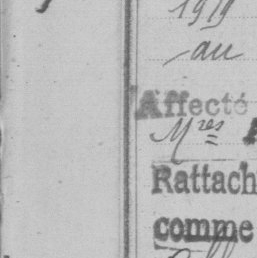 1919
au
Affecté
Mres
Rattach
comme